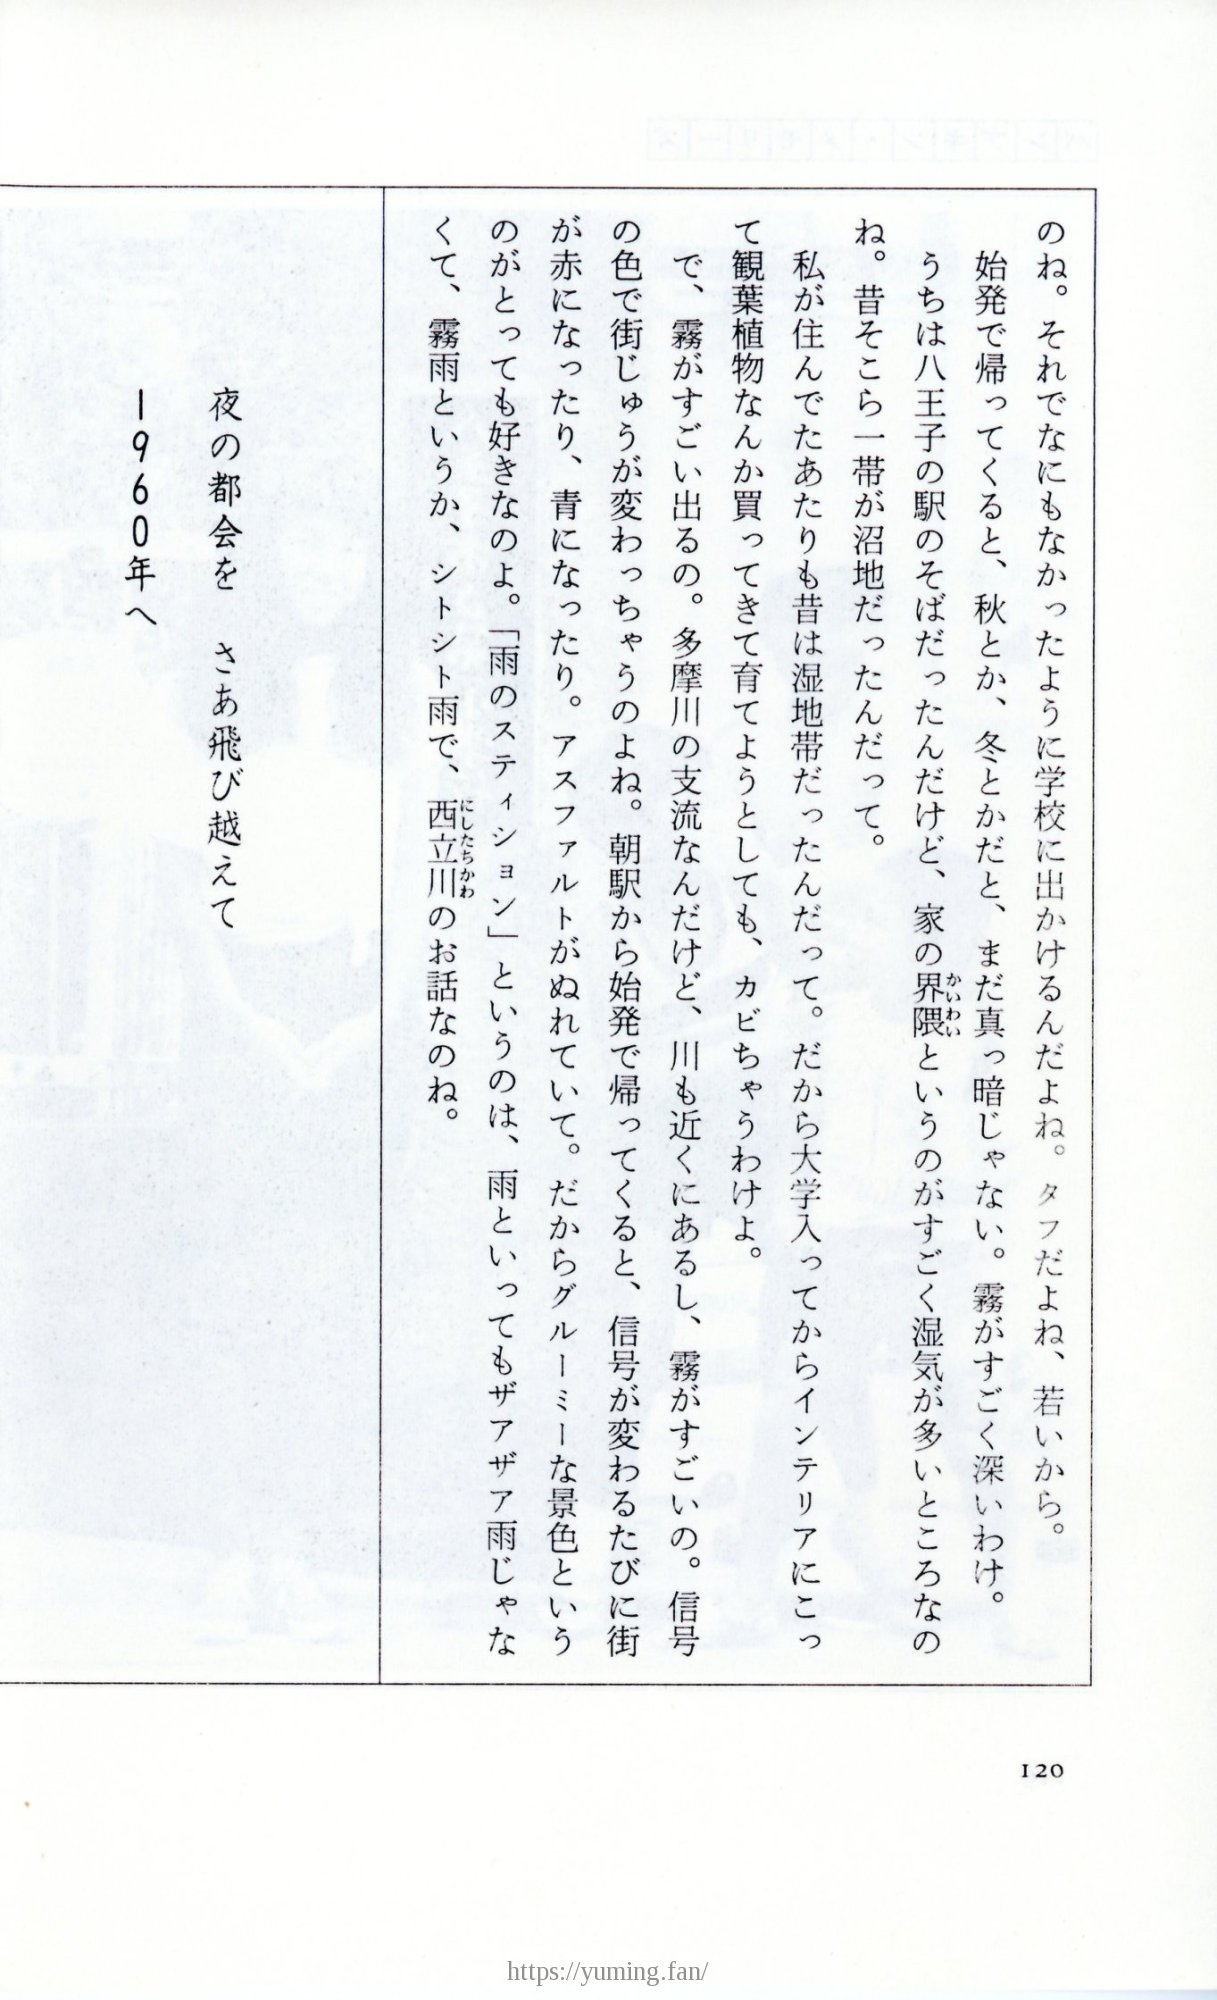 のね。それでなにもなかったように学校に出かけるんだよね。タフだよね、若いから。
始発で帰ってくると、秋とか、冬とかだと、まだ真っ暗じゃない。霧がすごく深いわけ。
うちは八王子の駅のそばだったんだけど、家の界隈というのがすごく湿気が多いところなの
かいわい
ね。昔そこら一帯が沼地だったんだって。
私が住んでたあたりも昔は湿地帯だったんだって。だから大学入ってからインテリアにこっ
て観葉植物なんか買ってきて育てようとしても、カビちゃうわけよ。
で、霧がすごい出るの。多摩川の支流なんだけど、川も近くにあるし、霧がすごいの。信号
の色で街じゅうが変わっちゃうのよね。朝駅から始発で帰ってくると、信号が変わるたびに街
が赤になったり、青になったり。アスファルトがぬれていて。だからグルーミーな景色という
のがとっても好きなのよ。「雨のスティション」というのは、雨といってもザアザア雨じゃな
くて、霧雨というか、シトシト雨で、西立川のお話なのね。
にしたちかわ
夜の都会を　さあ飛び越えて
1960年へ
120
https://yuming.fan/